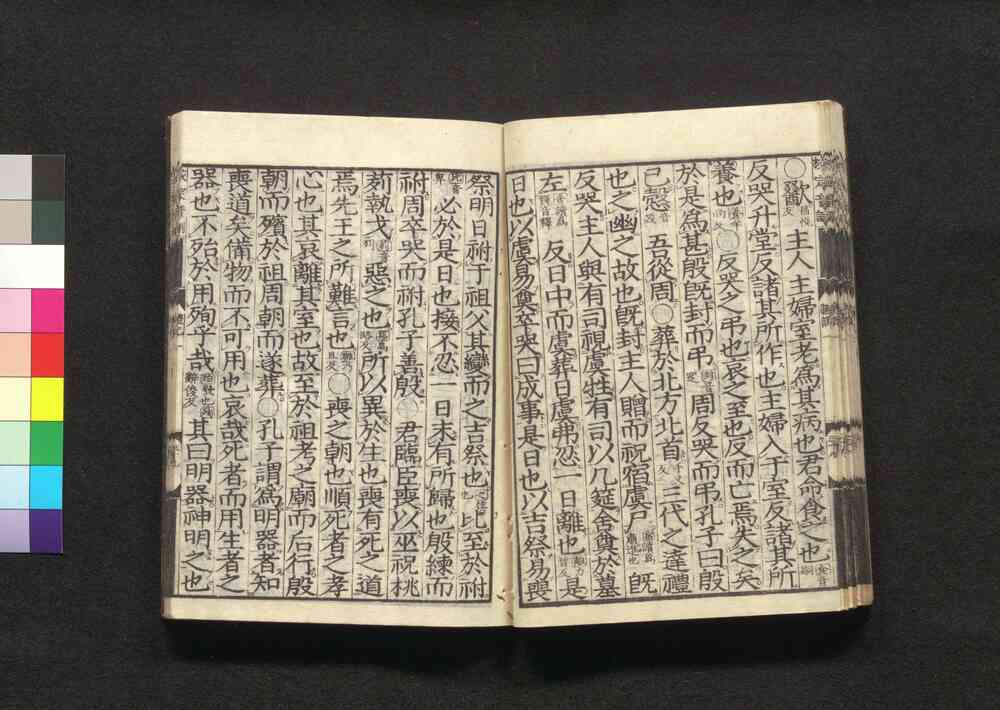 ○歠主人主婦室老爲其病也君命食之也
反哭升堂反諸其所作也主婦入于室反諸其所
養也○反哭之弔也哀之至也反而亡焉失之矣
於是爲甚殷既封而弔周反哭而弔孔子曰殷
已慤吾從周○葬於北方北首三代之達禮
也之幽之故也既封主人贈而祝宿虞尸既
反哭主人與有司視虞牲有司以几筵舍奠於墓
左反日中而虞葬日虞弗忍一日離也是
日也以虞易奠卒哭曰成事是日也以吉祭易喪
祭明日祔于祖父其變而之吉祭也比至於祔
必於是日也接不忍一日末有所歸也殷練而
祔周卒哭而祔孔子善殷○君臨臣喪以巫祝桃
茢執戈惡之也所以異於生也喪有死之道
焉先王之所難言也○喪之朝也順死者之孝
心也其哀離其室也故至於祖考之廟而后行殷
朝而殯於祖周朝而遂葬○孔子謂爲明器者知
喪道矣備物而不可用也哀哉死者而用生者之
器也不殆於用殉乎哉其曰明器神明之也